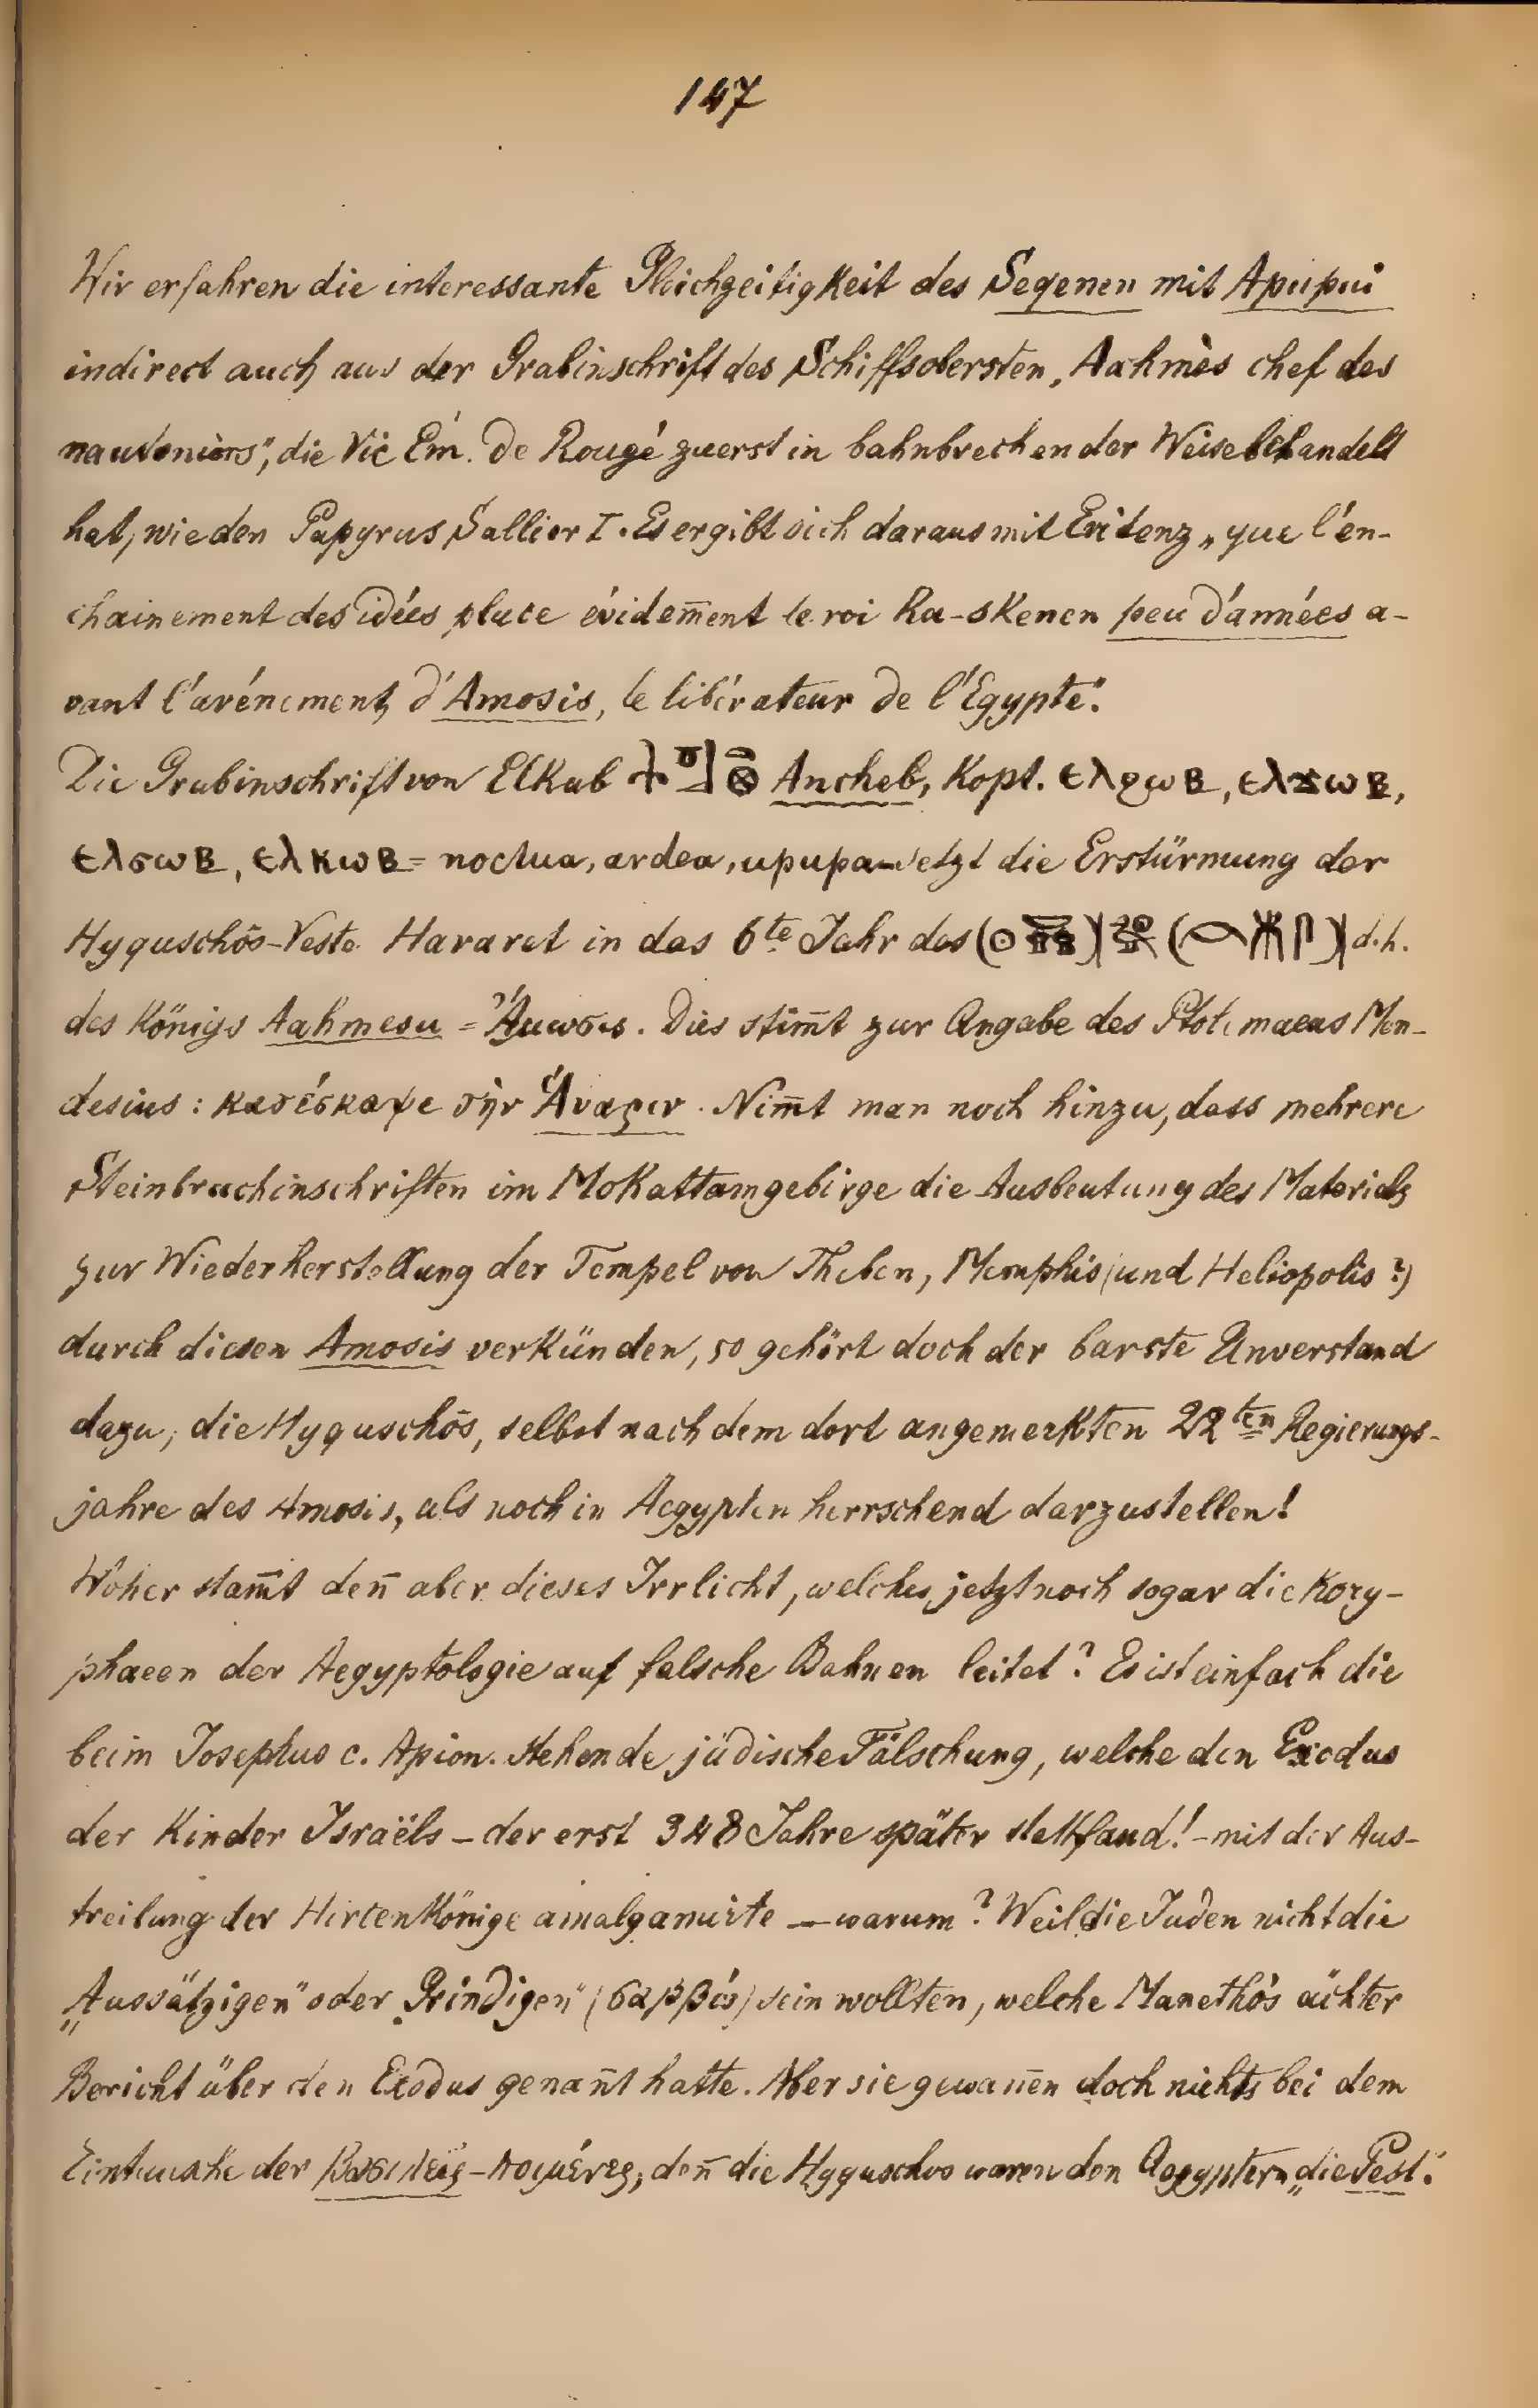 147
Wir erfahren die interessante Gleichzeitigkeit des Seqenen mit Apupui
indirect auch aus der Grabinschrift des Schiffsobersten „Aahmès chef des
nautoniers“, die Vic Em. de Rougé zuerst in bahnbrechender Weise behandelt
hat, wie den Papyrus Sallier I. Es ergibt sich daraus mit Evidenz „que l'en-
chainement des idées place évidem̄ent le roi Ra-skenen peu d'années a-
vant l'avénement d'Amosis, le libérateur de l'Egypte“.
Die Grabinschrift von ElKab Ancheb, Kopt. ⲉⲗϩⲱⲃ, ⲉⲗϫⲱⲃ,
ⲉⲗϭⲱⲃ, ⲉⲗⲕⲱⲃ = noctua, ardea, upupa – setzt die Erstürmung der
Hyquschôs-Veste Havaret in das 6te Jahr des d. h.
des Königs Aahmesu = Ἄμωσις. Dies stim̄t zur Angabe des Ptolemaeus Men-
desius: κατέσκαψε τὴν Ἄυαριν. Nim̄t man noch hinzu, dass mehrere
Steinbruchinschriften im Mokattamgebirge die Ausbeutung des Materials
zur Wiederherstellung der Tempel von Theben, Memphis (und Heliopolis?)
durch diesen Amosis verkünden, so gehört doch der barste Unverstand
dazu, die Hyquschôs, selbst nach dem dort angemerkten 22ten Regierungs-
jahre des Amosis, als noch in Aegypten herrschend darzustellen!
Woher stam̄t den̄ aber dieses Irrlicht, welches jetzt noch sogar die Kory-
phaeen der Aegyptologie auf falsche Bahnen leitet? Es ist einfach die
beim Josephus c. Apion. stehende jüdische Fälschung, welche den Exodus
der Kinder Israëls – der erst 348 Jahre später stattfand! – mit der Aus-
treibung der Hirtenkönige amalgamirte – warum? Weil die Juden nicht die
„Aussätzigen“ oder „Grindigen“ (σαββώ) sein wollten, welche Manethôs ächter
Bericht über den Exodus genan̄t hatte. Aber sie gewan̄en doch nichts bei dem
Eintausche der βασιλεῖς-ποιμένες, den̄ die Hyquschos waren den Aegyptern „die Pest“.